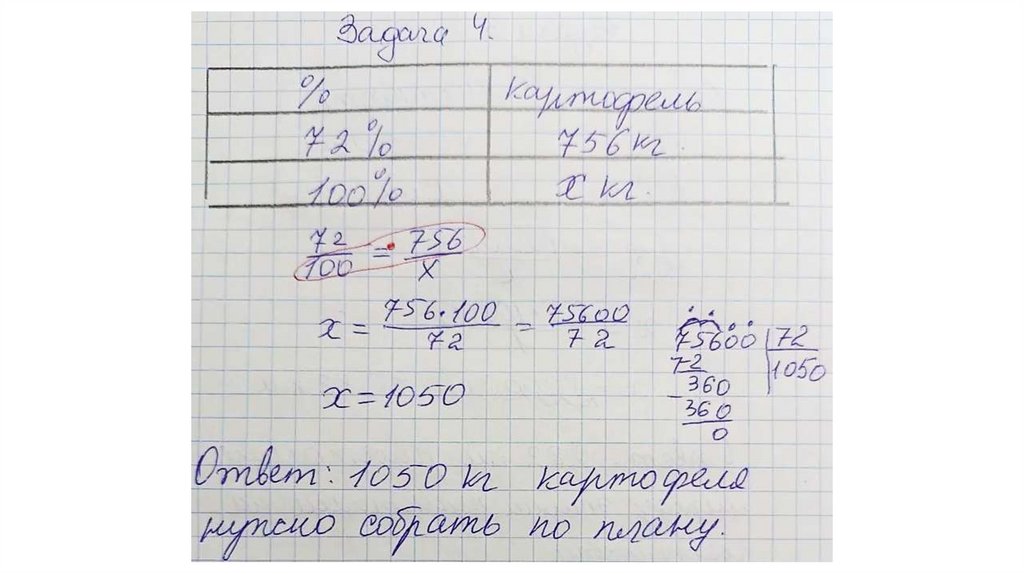 Задача 4.
% картофель
72% 756 кг
100% x кг.
72/100 = 756/x
x = 756·100/72 = 75600/72
x = 1050
75600 | 72
72 | 1050
360
- 360
0
Ответ: 1050 кг картофеля
нужно собрать по плану.